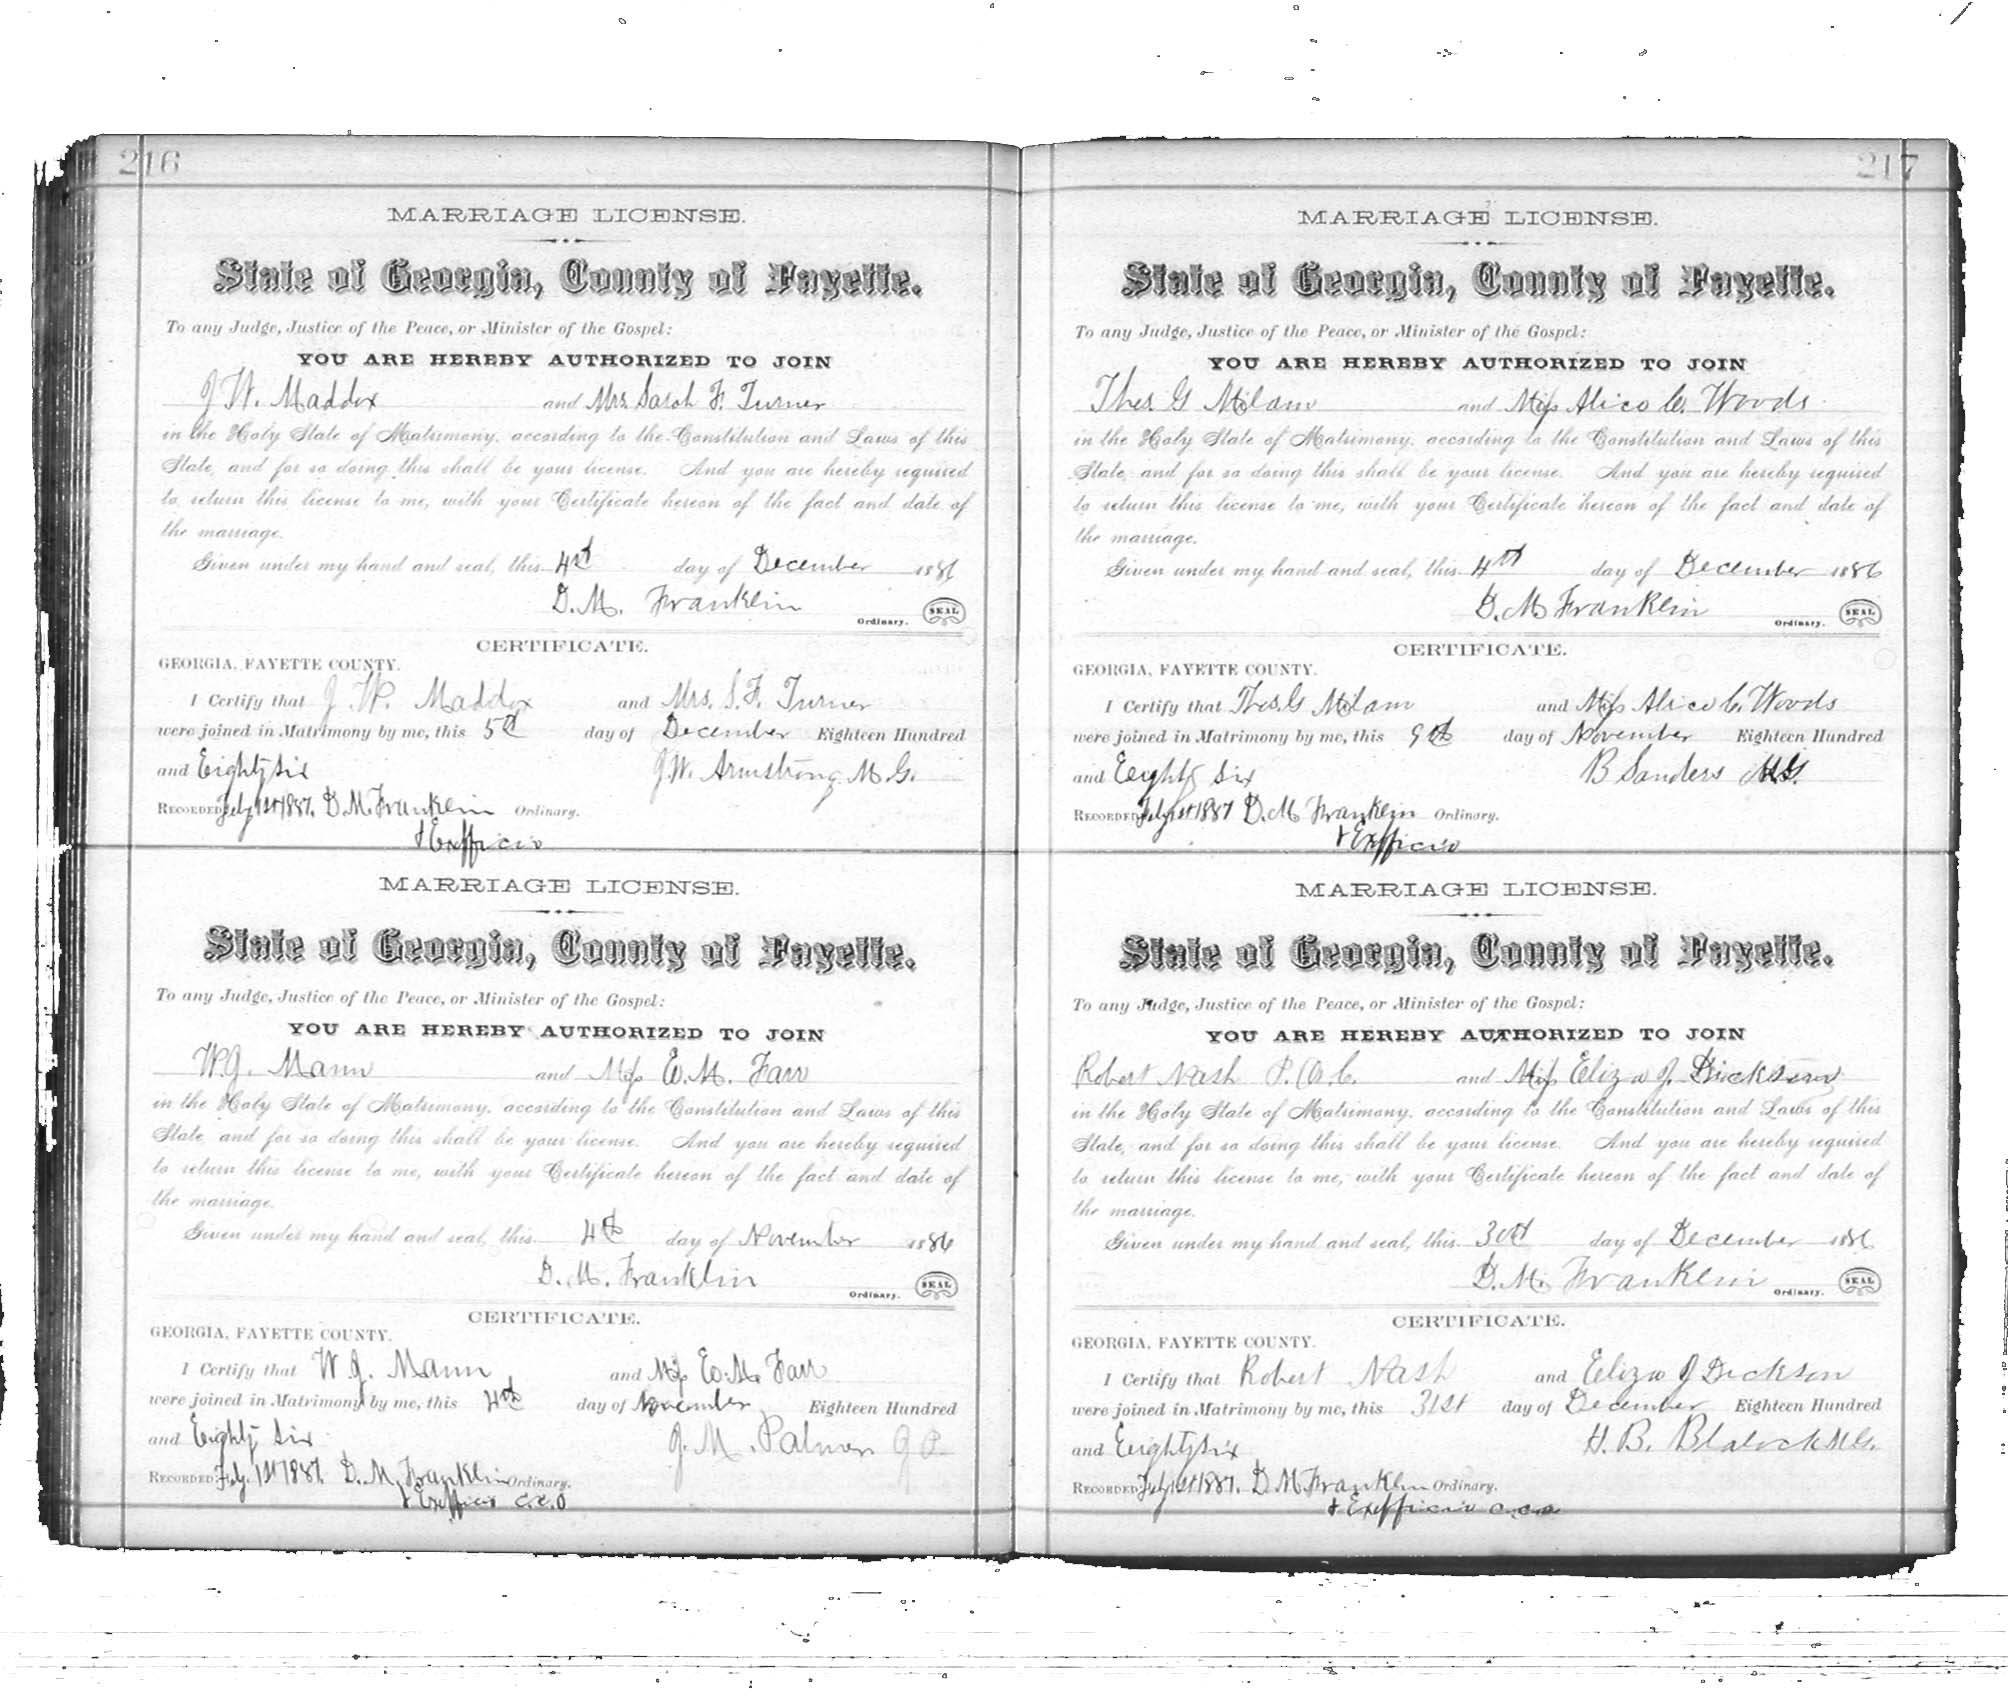 216
MARRIAGE LICENSE.
State of Georgia, County of Fayette.
To any Judge, Justice of the Peace, or Minister of the Gospel:
YOU ARE HEREBY AUTHORIZED TO JOIN
J W. Maddox and Mrs. Sarah F. Turner
in the Holy State of Matrimony, according to the Constitution and Laws of this
State, and for so doing this shall be your license. And you are hereby required
to return this license to me, with your Certificate hereon of the fact and date of
the marriage.
Given under my hand and seal, this 4th day of December 1886
D. M. Franklin
Ordinary. SEAL
CERTIFICATE.
GEORGIA, FAYETTE COUNTY.
I Certify that J. W. Maddox and Mrs. S. F. Turner
were joined in Matrimony by me, this 5th day of December Eighteen Hundred
and Eighty Six J. W. Armstrong M. G.
RECORDED Feby 1st 1887. D. M. Franklin Ordinary.
& Exofficio
MARRIAGE LICENSE.
State of Georgia, County of Fayette.
To any Judge, Justice of the Peace, or Minister of the Gospel:
YOU ARE HEREBY AUTHORIZED TO JOIN
W. J. Mann and Miss E. M. Farr
in the Holy State of Matrimony, according to the Constitution and Laws of this
State, and for so doing this shall be your license. And you are hereby required
to return this license to me, with your Certificate hereon of the fact and date of
the marriage.
Given under my hand and seal, this 4th day of November 1886
D. M. Franklin
Ordinary. SEAL
CERTIFICATE.
GEORGIA, FAYETTE COUNTY.
I Certify that W. J. Mann and Miss E. M. Farr
were joined in Matrimony by me, this 4th day of November Eighteen Hundred
and Eighty Six J. M. Palmer J P.
RECORDED Feby. 1st 1887. D. M. Franklin Ordinary.
& Exofficio C.C.O
217
MARRIAGE LICENSE.
State of Georgia, County of Fayette.
To any Judge, Justice of the Peace, or Minister of the Gospel:
YOU ARE HEREBY AUTHORIZED TO JOIN
Thos. G Milam and Miss Alice C. Woods
in the Holy State of Matrimony, according to the Constitution and Laws of this
State, and for so doing this shall be your license. And you are hereby required
to return this license to me, with your Certificate hereon of the fact and date of
the marriage.
Given under my hand and seal, this 4th day of December 1886
D. M Franklin
Ordinary. SEAL
CERTIFICATE.
GEORGIA, FAYETTE COUNTY.
I Certify that Thos. G Milam and Miss Alice C. Woods
were joined in Matrimony by me, this 9th day of November Eighteen Hundred
and Eeighty Six B Sanders M.G.
RECORDED Feby 1st 1887 D. M Franklin Ordinary.
& Exofficio
MARRIAGE LICENSE.
State of Georgia, County of Fayette.
To any Judge, Justice of the Peace, or Minister of the Gospel:
YOU ARE HEREBY AUTHORIZED TO JOIN
Robert Nash P. O. C. and Miss Eliza J. Dickson
in the Holy State of Matrimony, according to the Constitution and Laws of this
State, and for so doing this shall be your license. And you are hereby required
to return this license to me, with your Certificate hereon of the fact and date of
the marriage.
Given under my hand and seal, this 30th day of December 1886
D. M. Franklin
Ordinary. SEAL
CERTIFICATE.
GEORGIA, FAYETTE COUNTY.
I Certify that Robert Nash and Eliza J Dickson
were joined in Matrimony by me, this 31st day of December Eighteen Hundred
and Eeighty Six H. B. Blalock M.G.
RECORDED Feby 1st 1887. D. M Franklin Ordinary.
& Exofficio C.C.O